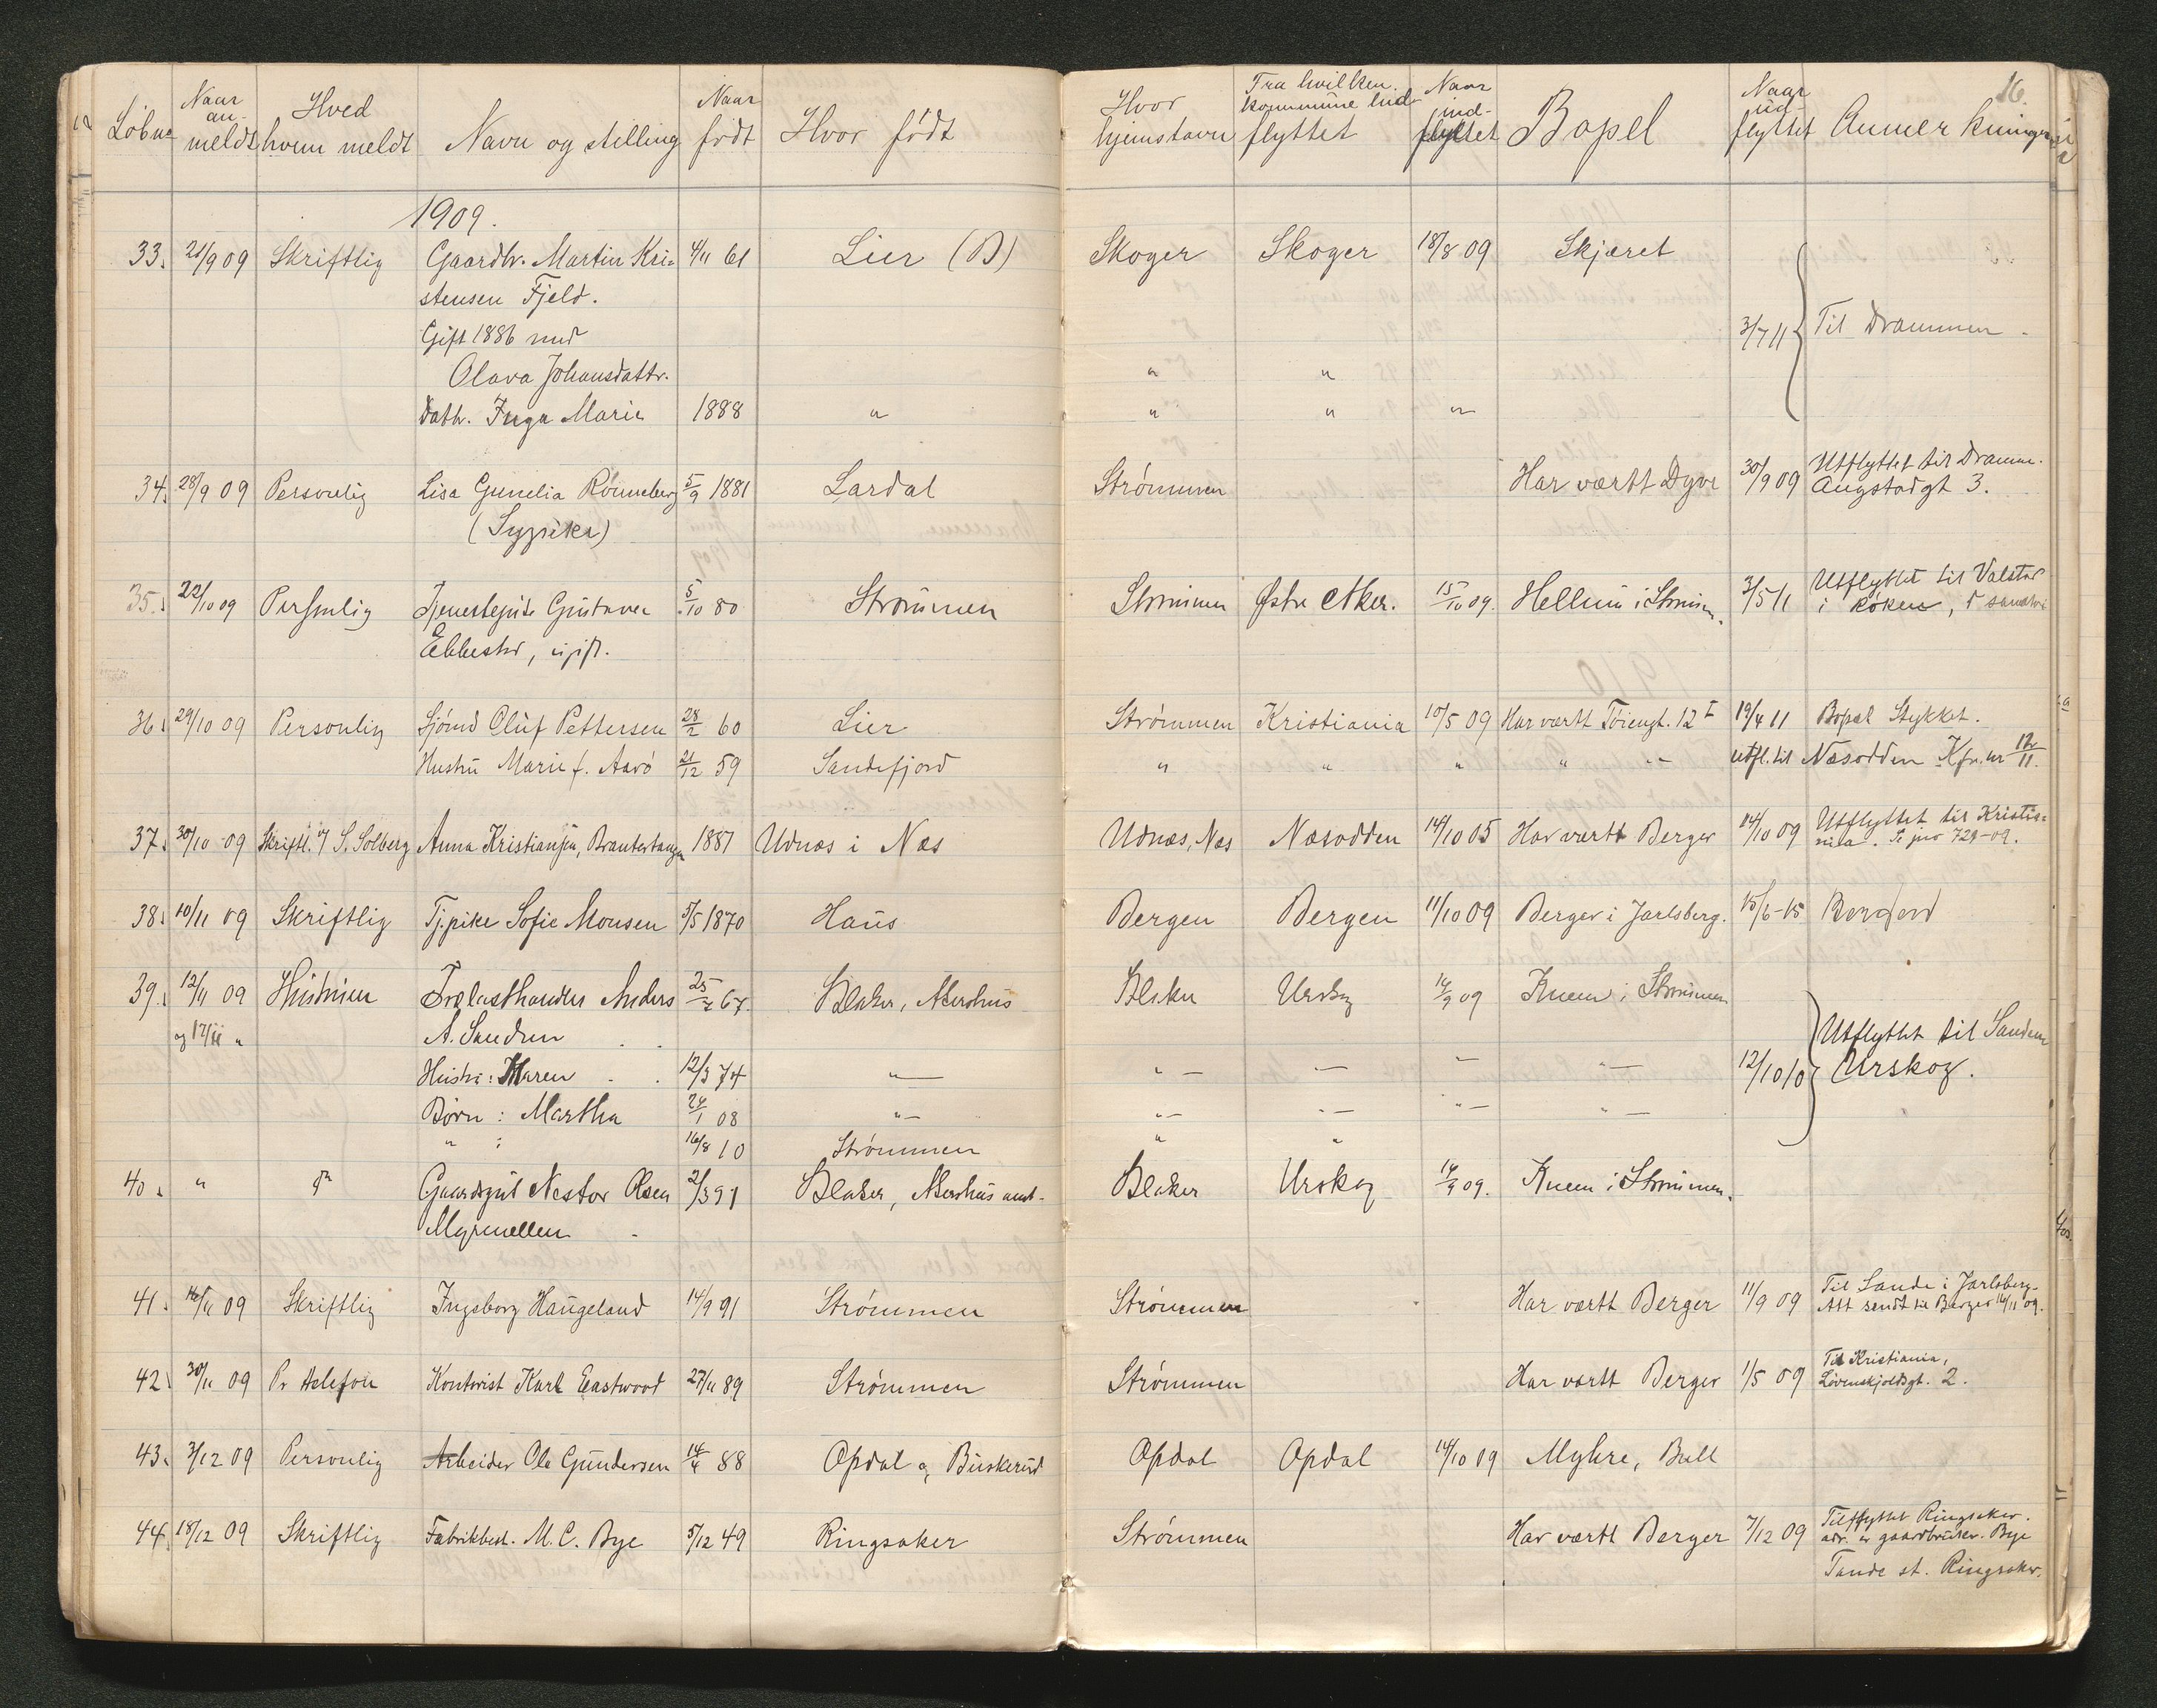 16.
Löbnr Naar anmeldt Hved hvem meldt Navn og stilling Naar födt Hvor födt Hvor hjemstavn Fra hvilken kommune indflyttet Naar indflyttet Bopel Naar udflyttet Anmerkninger
1909.
33. 21/9 09 Skriftlig Gaardbr. Martin Kri- 4/11 61 Lier (B) Skoger Skoger 18/8 09 Skjæret
stensen Fjeld.
Gift 1886 med 3/7 11 Til Drammen -
Olava Johansdattr. " "
Dattr. Inga Marie 1888 " " " "
34. 28/9 09 Personlig Lisa Gunelia Rönneberg 5/9 1881 Lardal Strømmen Har værtt Dyve 30/9 09 Utflyttet til Dramm.
(Sypike) Augstadgt 3.
35. 22/10 09 Personlig Tjenestepike Gustava 5/10 80 Strømmen Strømmen Østre Aker. 15/10 09. Hellum i Strømm. 3/5 11 Utflyttet til Valstad
Ebbestad, ugift. i Røken,
36. 29/10 09 Personlig Sjömd Oluf Pettersen 28/2 60 Lier Strømmen Kristiania 10/5 09 Har værtt Töiengt. 12 I 19/4 11 Bopæl Stykket.
Hustru Marie f. Aarö 21/12 59 Sandefjord " " " " " utfl. til Næsodden Kfr. nr 12/11.
37. 30/10 09 Skriftl. v/ S. Solberg Anna Kristiansen, Brantertangen 1881 Udnæs i Næs Udnæs, Næs Næsodden 14/10 05 Har værtt Berger 14/10 09 Utflyttet til Kristia-
nia. Se jnr 729-09.
38. 10/11 09 Skriftlig Tj.pike Sofie Monsen 5/5 1870 Haus Bergen Bergen 11/10 09 Berger i Jarlsberg. 15/6-15
39. 12/11 09 Hustruen Trælasthandler Anders 25/2 67. Blaker, Akershus Blaker Urskog 14/9 09 Knem i Strømmen
og 17/11 " A. Sandem Utflyttet til Sandem
Hustru: Maren 12/3 74 " " — — " 12/10 10 Urskog.
Börn: Martha 24/1 08 " " " " "
" : 16/8 10 Strömmen " "
40. " do Gaardsgut Nestor Olsen 2/3 91 Blaker, Akershus amt. Blaker Urskog 14/9 09. Knem i Strømmen.
Myrmellem
41. 16/11 09 Skriftlig Ingeborg Haugeland 14/9 91 Strömmen Strömmen Har værtt Berger 11/9 09 Til Sande i Jarlsberg.
Att sendt til Berger 16/11 09.
42. 30/11 09 Pr telefon Kontorist Karl Eastwood 27/11 89 Strömmen Strömmen Har værtt Berger 1/5 09 Til Kristiania,
Lövenskjoldsgt. 2.
43. 3/12 09 Personlig Arbeider Ole Gundersen 14/4 88 Opdal, Buskerud Opdal Opdal 14/10 09 Myhre, Bull
44. 18/12 09 Skriftlig Fabrikbest. M. C. Bye 5/12 49 Ringsaker Strömmen Har værtt Berger 7/12 09 Tilflyttet Ringsaker.
adr. gaardbruker. Bye
Tande st. Ringsaker.